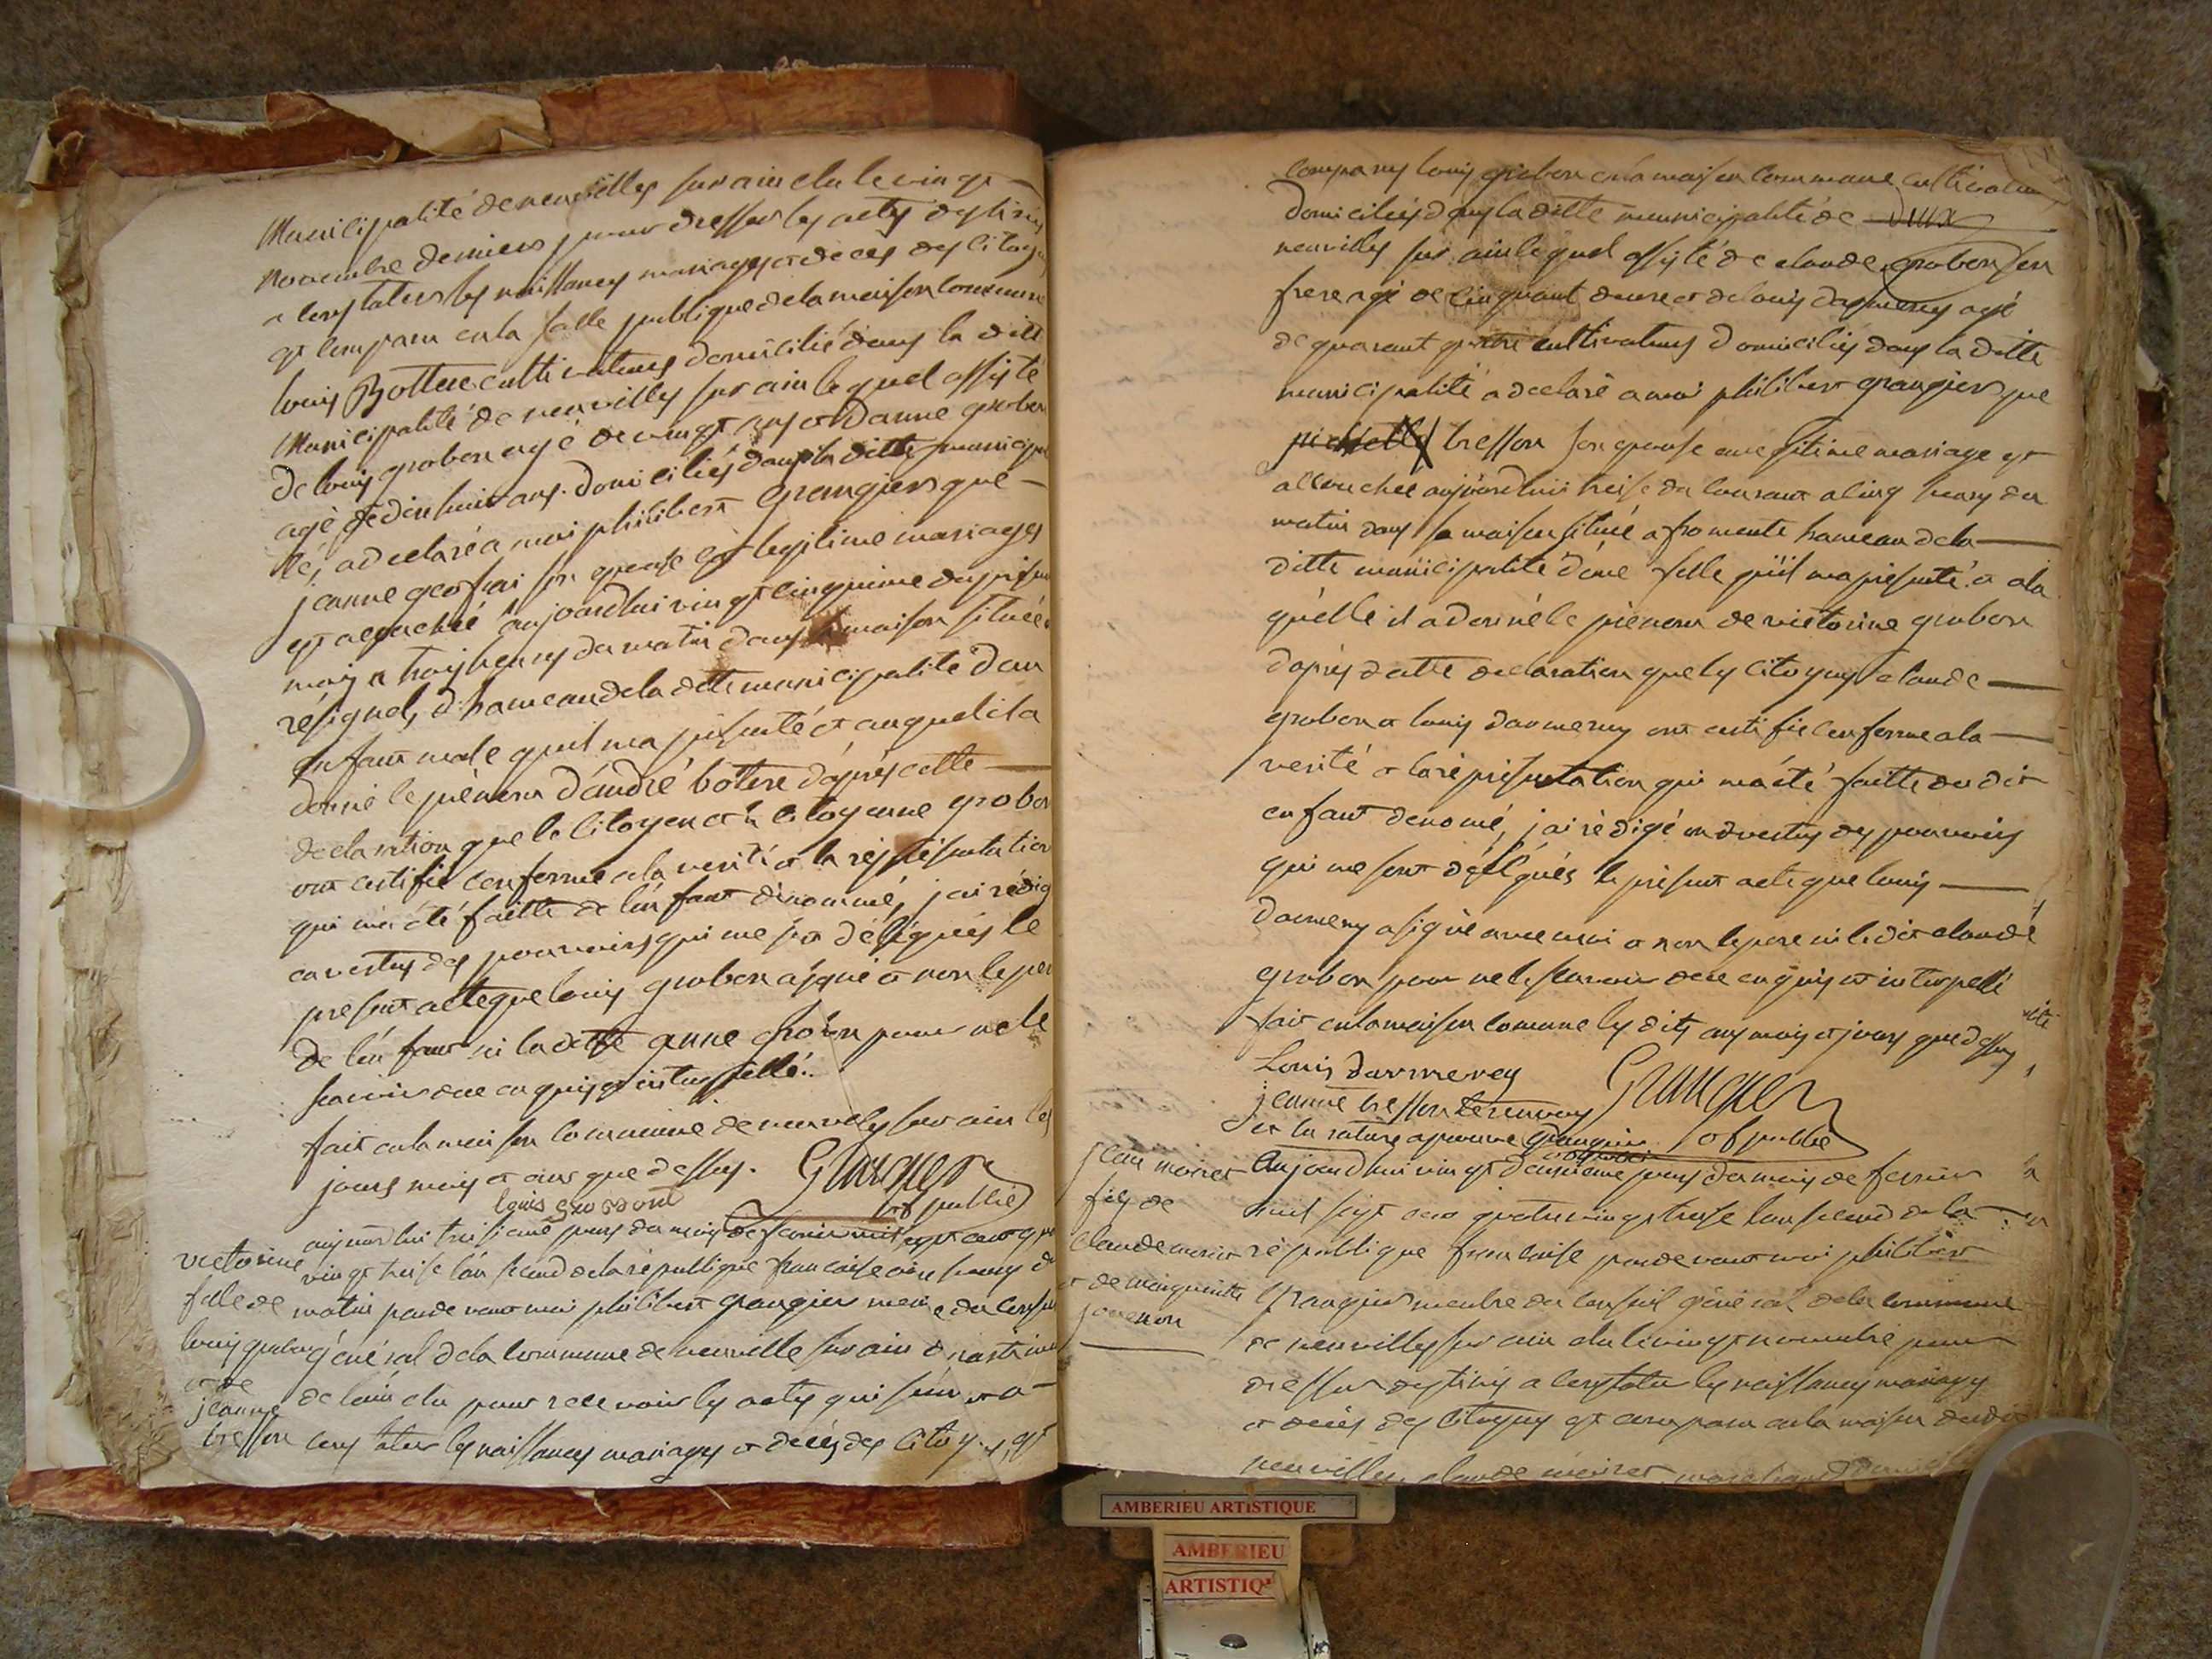 Municipalité de neuvilles sur ain elu le vingt
novembre derniers pour dresser les actes destinés
a constaters les naissances mariages et deces des citoy
est comparu en la salle publique de la maison commune
louis Bottere cultivateurs domicilié dans la ditte
Municipalité de neuvilles sur ain le quel assisté
de louis grobon agé de vingt ans et danne grobon
agé de dix huit ans domiciliés dans la ditte municipa
té, a declaré a moi philibert grangiers que
jeanne geofrai son epouse en legitime mariages
est accouchée aujourdhui vingt cinquieme du présent
mois a trois heures du matin dans sa maison située
résignel, d hameau de la ditte municipalité dun
enfant male quil ma présenté et auquel il a
donné le prénom d'andré bottere d'après cette
declaration que le citoyen et la citoyenne grobon
ont certifié conforme a la verité et la représentation
qui ma été faitte de l'enfant dénommé, j'ai rédig
en vertus des pouvoirs qui me sont délégués le
present acte que louis grobon a signé et non le per
de l'enfant ni la ditte anne grobon pour ne le
scavoir de ce enquis et interpellé.
fait en la maison commune de neuvilles sur ain les
jours mois et ans que dessus. Grangier
louis grobon of public
aujourdhui treisieme jours du mois de fevrier mil sept cent qua
vingt treise l'an second de la république francaise onze heures du
matin par devant moi philibert grangiers membre du conseil
général de la commune de neuville sur ain
de l'ain elu pour recevoir les actes qui seront a
constater les naissances mariages et decés des citoyens, est
victorine
fille de
louis grobon
et de
jeanne
bresson
comparus louis grobon en la maison commune cultivateur
domiciliés dans la ditte municipalité de
neuvilles sur ain le quel assisté de claude grobon son
frere agé de cinquant deux et de louis daumerey agé
de quarant quatre cultivateurs domiciliés dans la ditte
municipalité a declaré a moi philibert grangiers que
bresson son epouse en legitime mariage est
accouchée aujourdhui treise du courant a cinq heures du
matin dans sa maison située a fromente hameau de la
ditte municipalité d'une fille quil ma présenté et a la
quélle il a donné le prénom de victorine grobon
daprés cette declaration que les citoyens claude
grobon et louis daumerey ont certifié conforme a la
verité et la représentation qui ma été faitte du dit
enfant denomé, j'ai rédigé en vertus des pouvoirs
qui me sont délégués le présent acte que louis
daumerey a signé avec moi et non le pere ni le dit claude
grobon pour ne le scavoir de ce enquis et interpellé
fait en la maison comune les dits ans mois et jours que dessus
Louis daumerey Grangier
jeanne bresson
et la rature aprouvé Grangier of public
jean moiret
fils de
claude moiret
et de marguerite
jouvenon
Aujourdhui vingt deuxieme jours du mois de fevrier
mil sept cent quatre vingt treise l'an second de la
république francaise par devant moi philibert
Grangiers membre du conseil général de la commune
de neuvilles sur ain elu le vingt novembre pour
dresser destinés a constater les naissances mariages
et decés des citoyens est comparu en la maison
neuvilles claude moiret
AMBERIEU ARTISTIQUE
AMBERIEU
ARTISTIQ